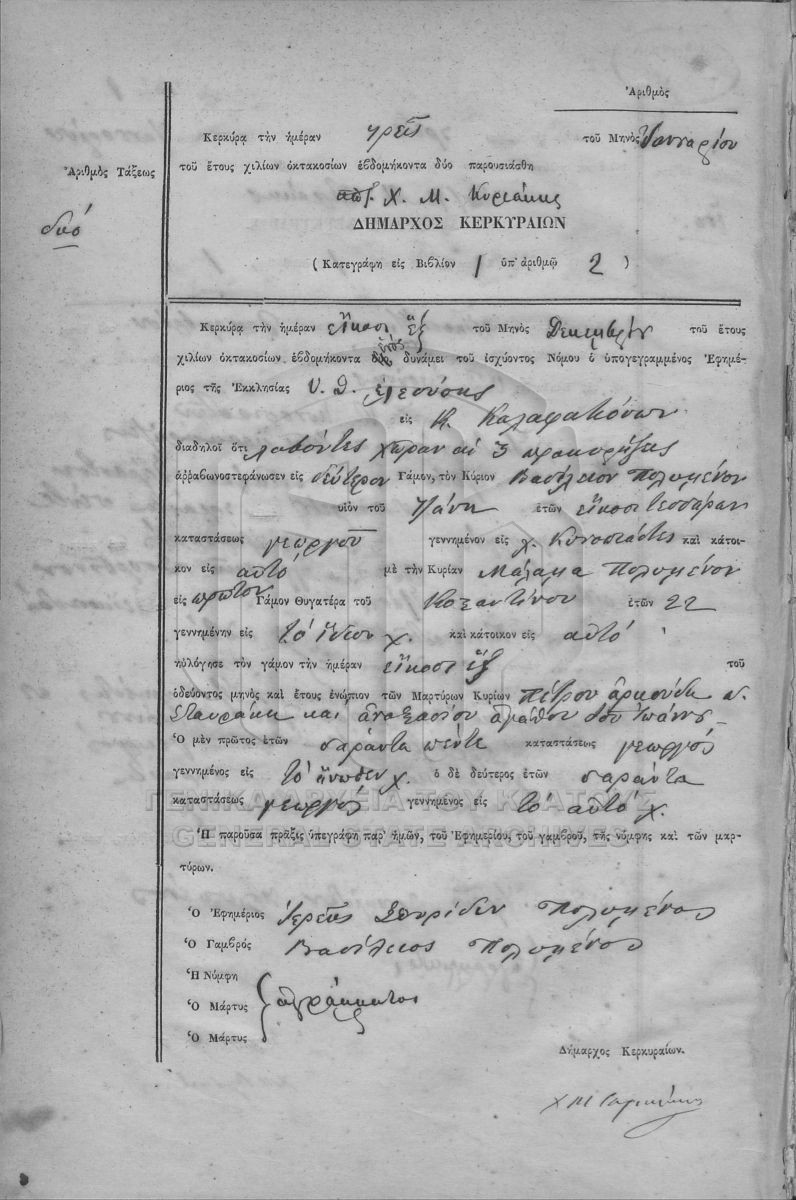 Ἀριθμὸς
Κερκύρα τὴν ἡμέραν τρεῖς τοῦ Μηνὸς Ἰανουαρίου
Ἀριθμὸς Τάξεως
τοῦ ἔτους χιλίων ὀκτακοσίων ἑβδομήκοντα δύο παρουσιάσθη
Χ. Μ. Κυριάκης
δυό
ΔΗΜΑΡΧΟΣ ΚΕΡΚΥΡΑΙΩΝ
(Κατεγράφη εἰς Βιβλίον 1 ὑπ' ἀριθμῷ 2)
Κερκύρα τὴν ἡμέραν εἴκοσι ἕξ τοῦ Μηνὸς Δεκεμβρίου τοῦ ἔτους
χιλίων ὀκτακοσίων ἑβδομήκοντα ἑνός δυνάμει τοῦ ἰσχύοντος Νόμου ὁ ὑπογεγραμμένος Ἐφημέ-
ριος τῆς Ἐκκλησίας Υ. Θ. ἐλεούσης
εἰς Καλαφατιόνων
διαδηλοῖ ὅτι λαβόντες χώραν αἱ 3 προκηρήξεις
ἀῤῥαβωνοστεφάνωσεν εἰς δεύτερον Γάμον, τὸν Κύριον Βασίλειον Πολυμένον
υἱὸν τοῦ Τζάνη ἐτῶν εἴκοσι τεσσάραν
καταστάσεως γεωργοῦ γεννημένον εἰς χ. Κυνοπιάστες καὶ κάτοι-
κον εἰς αυτό μὲ τὴν Κυρίαν Μάλαμα Πολυμένον
εἰς πρῶτον Γάμον Θυγατέρα τοῦ Κοσταντίνου ἐτῶν 22
γεννημένην εἰς τὸ ἴδιον χ. καὶ κάτοικον εἰς αυτό
ηὐλόγησε τὸν γάμον τὴν ἡμέραν εἴκοσι ἕξ τοῦ
ὁδεύοντος μηνὸς καὶ ἔτους ἐνώπιον τῶν Μαρτύρων Κυρίων Πέτρου ἀρκούδη
Σταυράκη και ἀναστασίου ἀγάθου του Ἰωάννη
Ὁ μὲν πρῶτος ἐτῶν σαράντα πέντε καταστάσεως γεωργός
γεννημένος εἰς τὸ ἄνωθεν χ. ὁ δὲ δεύτερος ἐτῶν σαράντα
ΓΕΝΙΚΑ ΑΡΧΕΙΑ ΤΟΥ ΚΡΑΤΟΥΣ
καταστάσεως γεωργός γεννημένος εἰς τὸ αυτό χ.
GENERAL STATE ARCHIVES
Ἡ παροῦσα πρᾶξις ὑπεγράφη παρ' ἡμῶν, τοῦ Ἐφημερίου, τοῦ γαμβροῦ, τῆς νύμφης καὶ τῶν μαρ-
τύρων.
Ὁ Ἐφημέριος Ἱερεῦς Σπυρίδων Πολυμένος
Ὁ Γαμβρός Βασίλειος Πολυμένος
Ἡ Νύμφη
Ὁ Μάρτυς ἀγράμματοι
Ὁ Μάρτυς
Δήμαρχος Κερκυραίων.